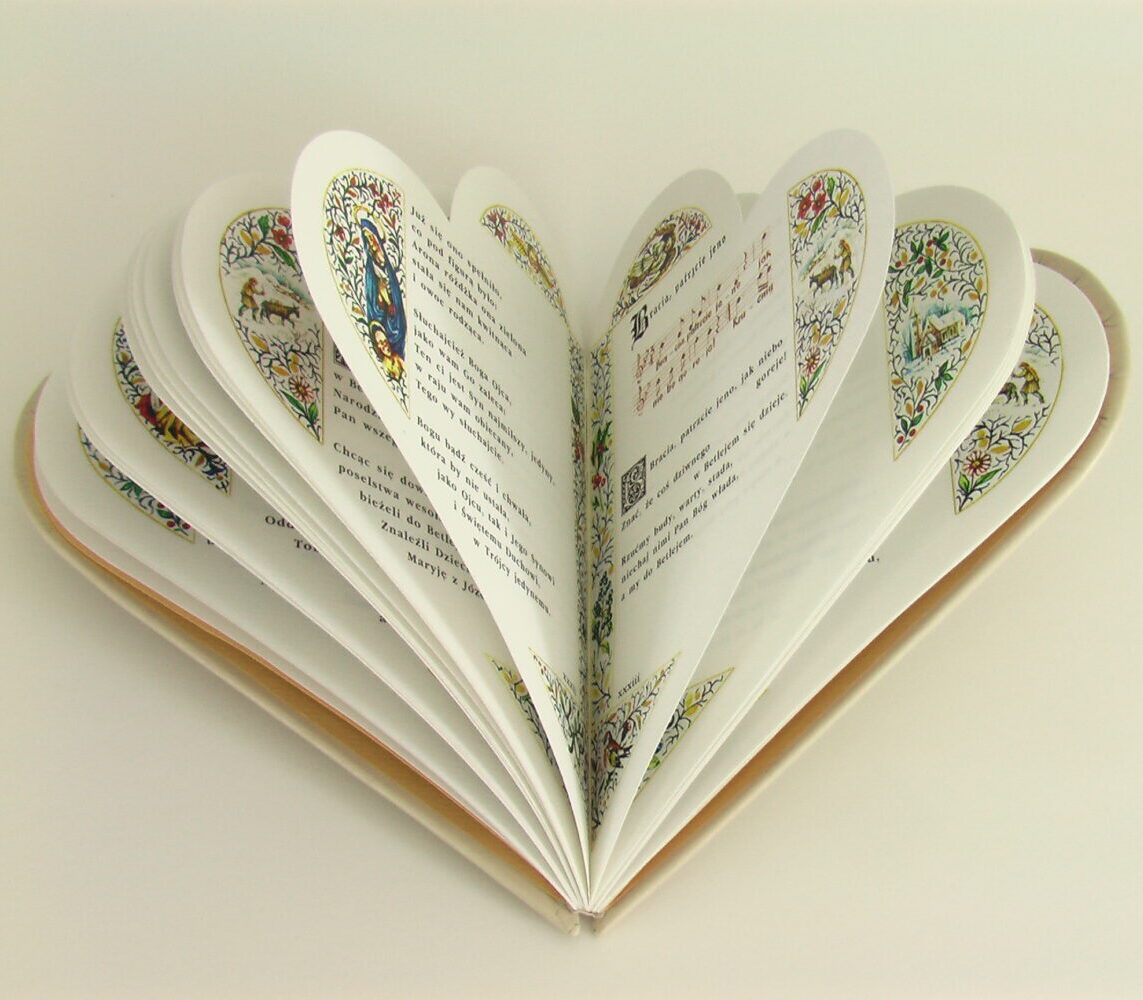 Już się ono spełniło
co pod figurą było:
Arona różdżka ona zielona
stała się nam kwitnąca
owoc rodząca.
Słuchajcież Boga Ojca,
jako wam Go zaleca:
Ten ci jest Syn najmilszy, jedyny,
w raju wam obiecany,
Tego wy słuchajcie
Bogu bądź cześć i chwała,
która by nie ustała,
jako Ojcu, tak i Jego Synowi
i Świętemu Duchowi,
w Trójcy jedynemu.
Bracia, patrzcie jeno
xxxiii
Bracia, patrzcie jeno, jak niebo
goreje!
Znać, że coś dziwnego
w Betlejem się dzieje.
Rzućmy budy, warty, stada,
niechaj nimi Pan Bóg włada,
a my do Betlejem.
w Be
Narodz
Pan wsze
Chcąc się dow
poselstwa weso
bieżeli do Betl
Znaleźli Dziec
Maryję z Józ
Odd